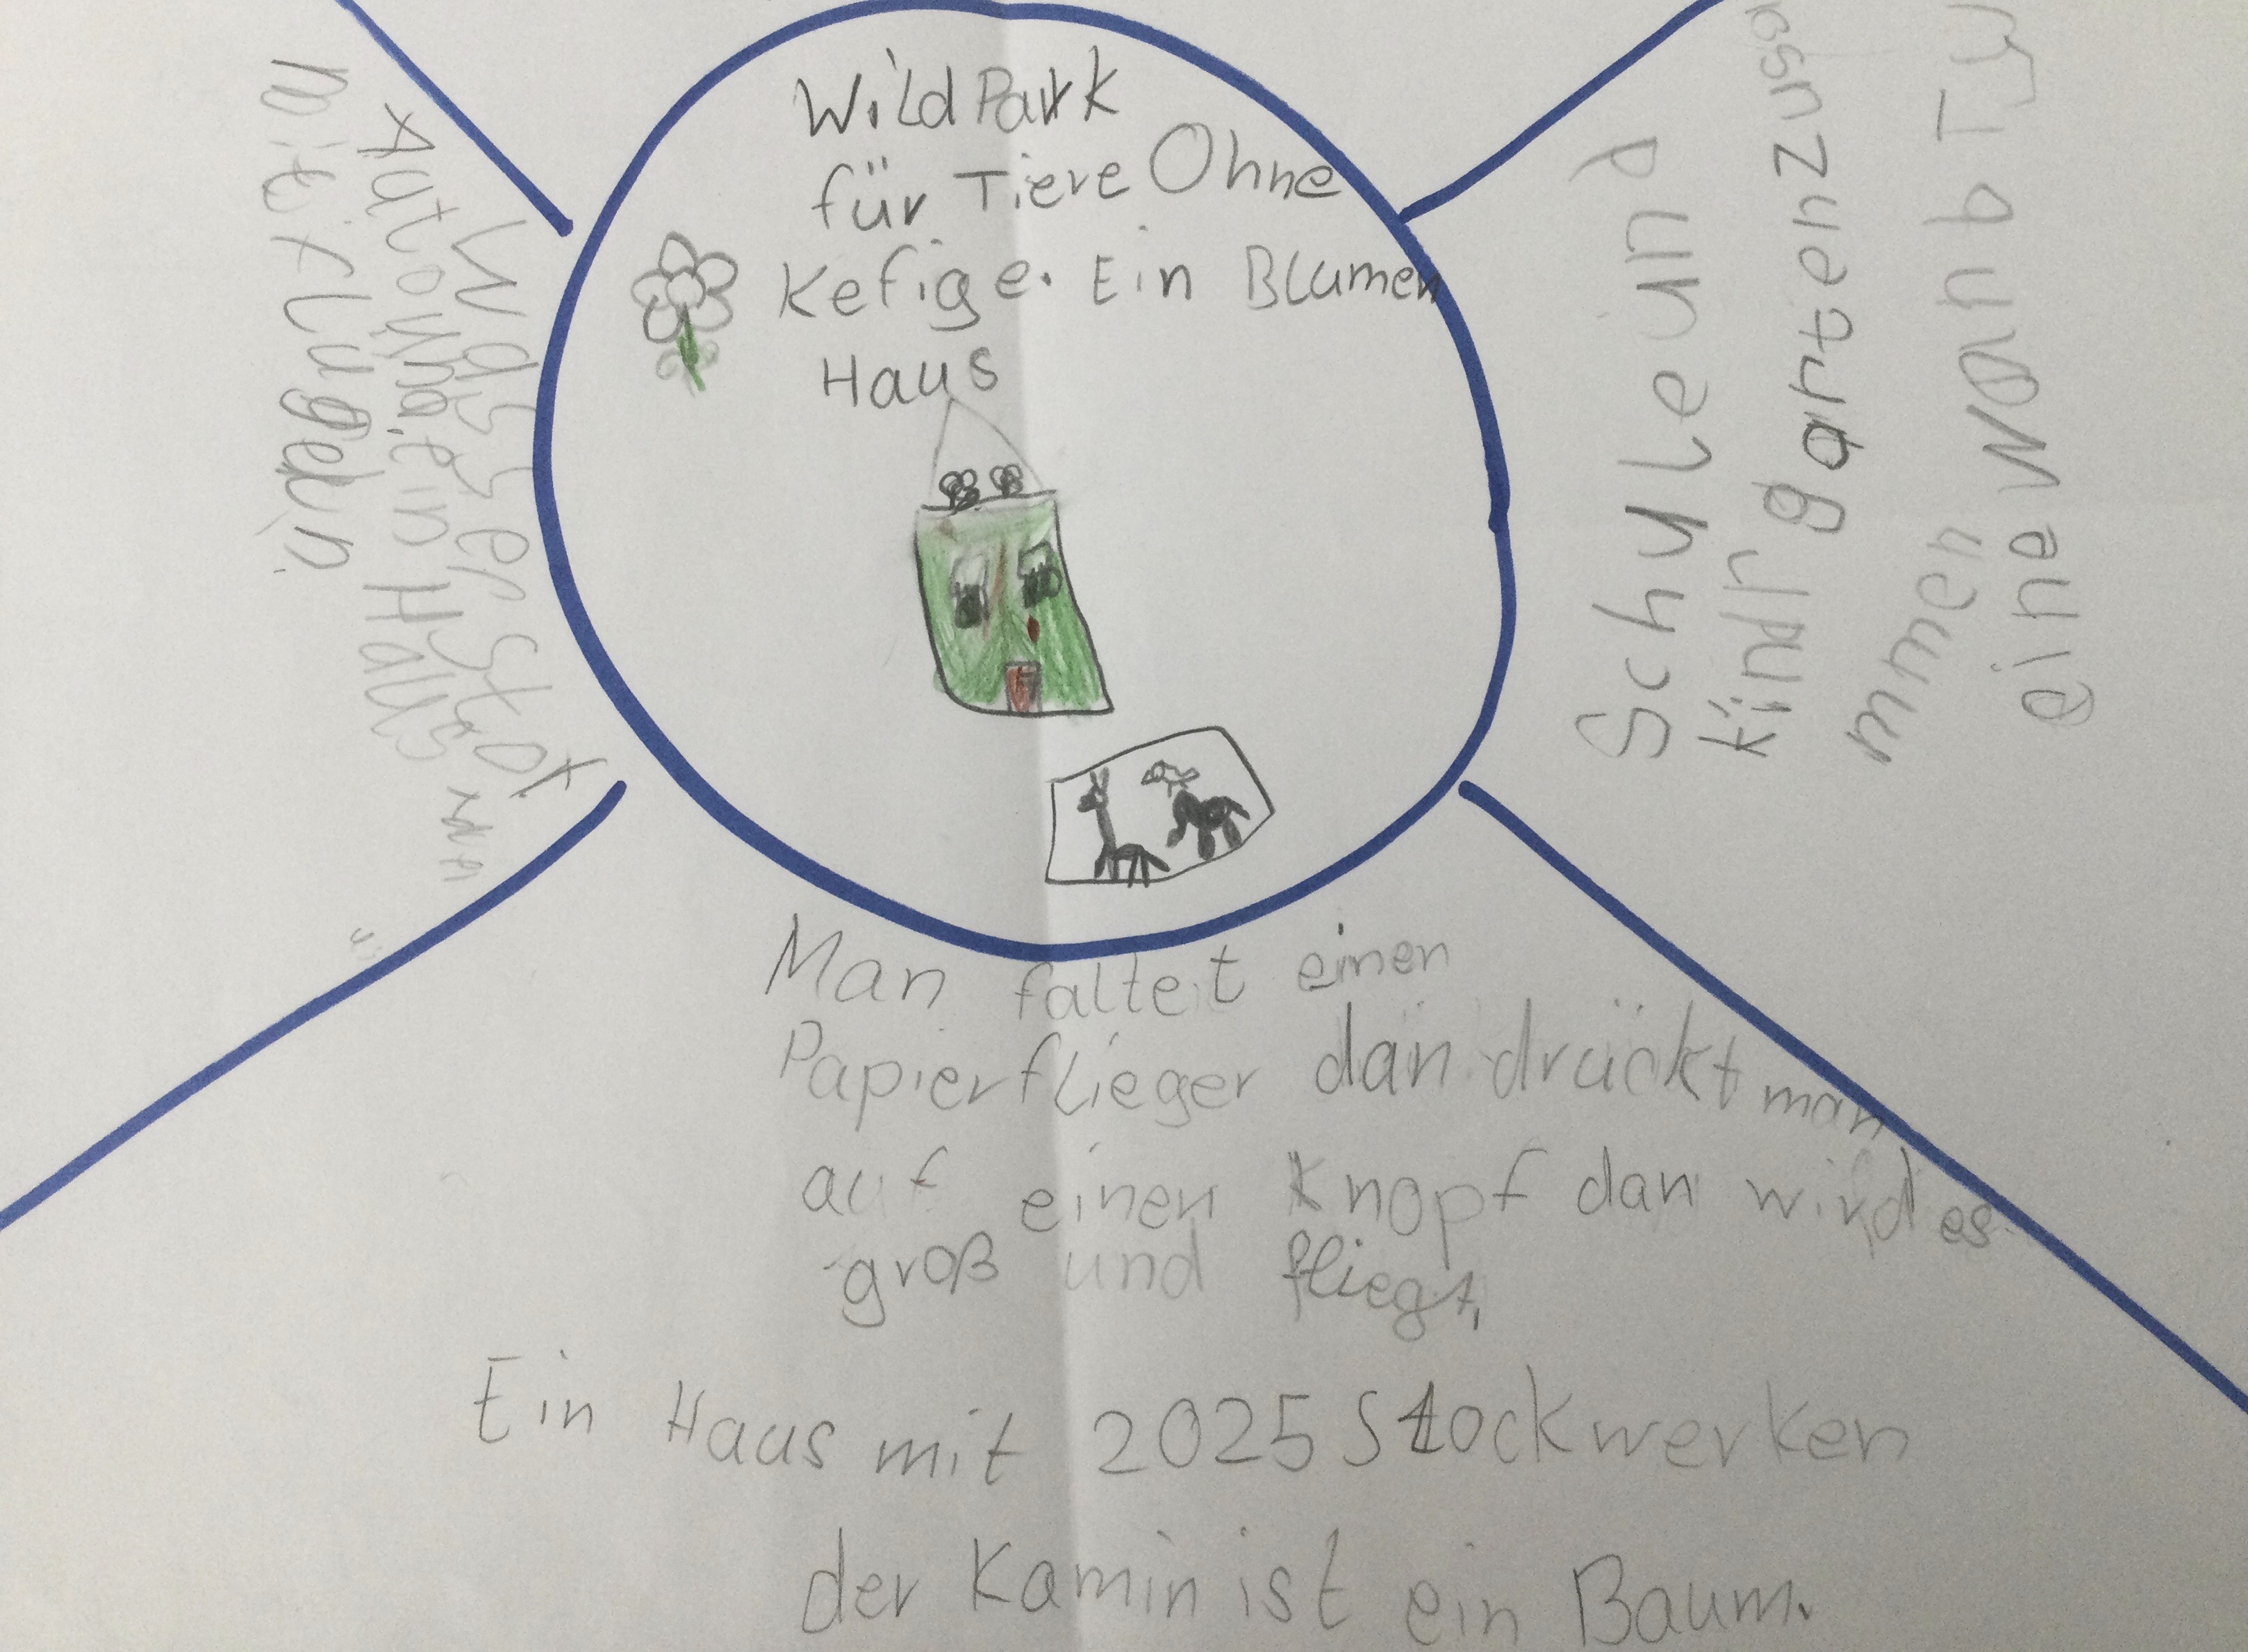 WildPark
für Tiere Ohne
Kefige. Ein Blumen
Haus
Schule und
Kindr gartenzusa
mmen
eine
Man faltet einen
Papierflieger dan drückt man
auf einen Knopf dan wird es
groß und fliegt,
Ein Haus mit 2025 Stockwerken
der Kamin ist ein Baum.
Wasserstof
Auto ein Haus
mit flugeln.